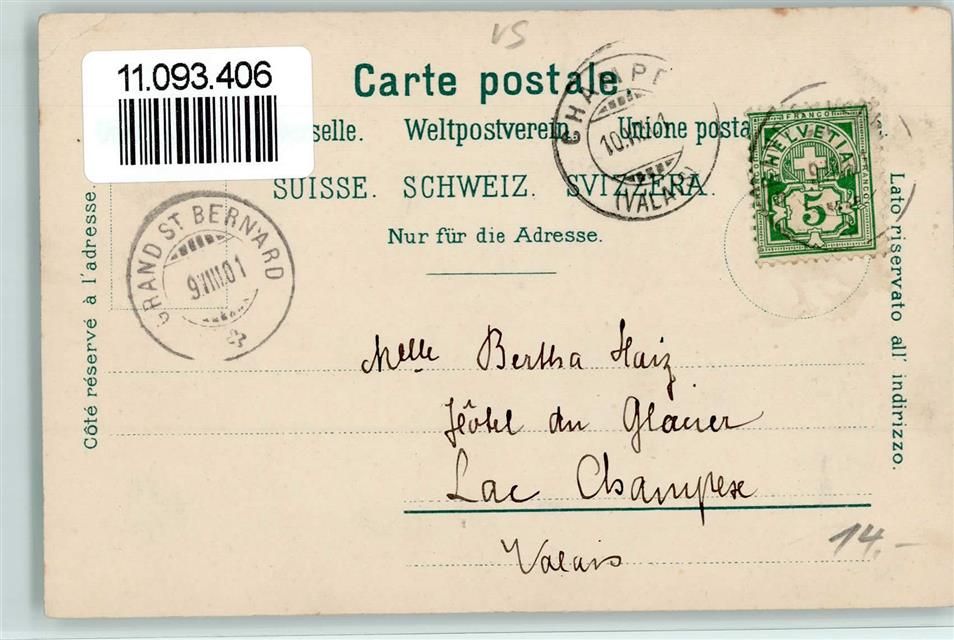 VS
11.093.406
Carte postale.
selle. Weltpostverein. Unione posta
SUISSE. SCHWEIZ. SVIZZERA.
Nur für die Adresse.
Côté réservé à l'adresse.
Lato riservato all' indirizzo.
GRAND ST BERNARD
9.VIII.01
CHAMPE
10.VIII.01
(VALAIS)
FRANCO
HELVETIA
5
Melle Bertha Haiz
Hôtel du Glacier
Lac Champex
Valais
14.-